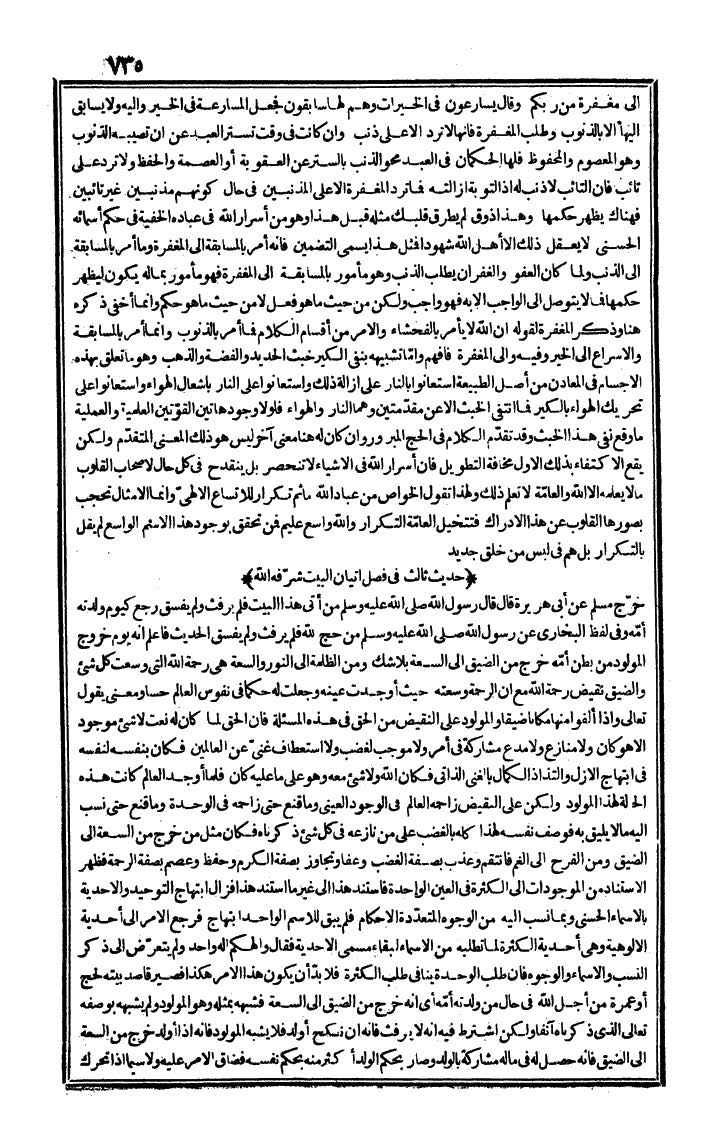 ٧٣٥
الى مغفرة من ربكم وقال يسارعون فى الخيرات وهم لها سابقون فجعل المسارعة فى الخير واليه ولا يسابق
اليها الا بالذنوب وطلب المغفرة فانها لا ترد الا على ذنب وان كانت فى وقت تستر العبد عن ان تصيبه الذنوب
وهو المعصوم والمحفوظ فلها الحكمان فى العبد محو الذنب بالستر عن العقوبة أو العصمة والحفظ ولا ترد على
تائب فان التائب لا ذنب له اذ التوبة ازالته فما ترد المغفرة الا على المذنبين فى حال كونهم مذنبين غير تائبين
فهناك يظهر حكمها وهذا ذوق لم يطرق قلبك مثله قبل هذا وهو من أسرار الله فى عباده الخفية فى حكم أسمائه
الحسنى لا يعقل ذلك الا أهل الله شهودا فمثل هذا يسمى التضمين فانه أمر بالمسابقة الى المغفرة وما أمر بالمسابقة
الى الذنب ولما كان العفو والغفران يطلب الذنب وهو مأمور بالمسابقة الى المغفرة فهو مأمور بماله يكون ليظهر
حكمها فما لا يتوصل الى الواجب الا به فهو واجب ولكن من حيث ما هو فعل لا من حيث ما هو حكم وانما أخفى ذكره
هنا وذكر المغفرة لقوله ان الله لا يأمر بالفحشاء والامر من أقسام الكلام فما أمر بالذنوب وانما أمر بالمسابقة
والاسراع الى الخير وفيه والى المغفرة فافهم وامّا تشبيهه بنفى الكير خبث الحديد والفضة والذهب وهو ما تعلق بهذه
الاجسام فى المعادن من أصل الطبيعة استعانوا بالنار على ازالة ذلك واستعانوا على النار باشعال الهواء واستعانوا على
تحريك الهواء بالكير فما انتفى الخبث الا عن مقدّمتين وهما النار والهواء فلولا وجود هاتين القوّتين العلمية والعملية
ما وقع نفى هذا الخبث وقد تقدّم الكلام فى الحج المبرور وان كان له هنا معنى آخر ليس هو ذلك المعنى المتقدّم ولكن
يقع الاكتفاء بذلك الاول مخافة التطويل فان أسرار الله فى الاشياء لا تنحصر بل ينقدح فى كل حال لاصحاب القلوب
ما لا يعلمه الا الله والعامّة لا تعلم ذلك ولهذا تقول الخواص من عباد الله ماثم تكرار للاتساع الالهىّ وانما الامثال تحجب
بصورها القلوب عن هذا الادراك فتتخيل العامّة التكرار والله واسع عليم فمن تحقق بوجود هذا الاسم الواسع لم يقل
بالتكرار بل هم فى لبس من خلق جديد
﴿حديث ثالث فى فصل اتيان البيت شرّفه الله﴾
خرّج مسلم عن أبى هريرة قال قال رسول الله صلى الله عليه وسلم من أتى هذا البيت فلم يرفث ولم يفسق رجع كيوم ولدته
أمّه وفى لفظ البخارى عن رسول الله صلى الله عليه وسلم من حج لله فلم يرفث ولم يفسق الحديث فاعلم انه يوم خروج
المولود من بطن أمّه خرج من الضيق الى السعة بلا شك ومن الظلمة الى النور والسعة هى رحمة الله التى وسعت كل شئ
والضيق نقيض رحمة الله مع ان الرحمة وسعته حيث أوجدت عينه وجعلت له حكما فى نفوس العالم حسا ومعنى يقول
تعالى واذا ألقوا منها مكانا ضيقا والمولود على النقيض من الحق فى هذه المسئلة فان الحق لما كان له نعت لا شئ موجود
الا هو كان ولا منازع ولا مدع مشاركة فى أمر ولا موجب لغضب ولا استعطاف غنىّ عن العالمين فكان بنفسه لنفسه
فى ابتهاج الازل والتذاذ الكمال بالغنى الذاتى فكان الله ولا شئ معه وهو على ما عليه كان فلما أوجد العالم كانت هذه
الحالة لهذا المولود ولكن على النقيض زاحمه العالم فى الوجود العينى وما قنع حتى زاحمه فى الوحدة وما قنع حتى نسب
اليه ما لا يليق به فوصف نفسه لهذا كله بالغضب على من نازعه فى كل شئ ذكرناه فكان مثل من خرج من السعة الى
الضيق ومن الفرح الى الغم فانتقم وعذب بصفة الغضب وعفا وتجاوز بصفة الكرم وحفظ وعصم بصفة الرحمة فظهر
الاستناد من الموجودات الى الكثرة فى العين الواحدة فاستند هذا الى غير ما استند هذا فزال ابتهاج التوحيد والاحدية
بالاسماء الحسنى وبما نسب اليه من الوجوه المتعدّدة الاحكام فلم يبق للاسم الواحد ابتهاج فرجع الامر الى أحدية
الالوهية وهى أحدية الكثرة لما تطلبه من الاسماء ابقاء مسمى الاحدية فقال والهكم اله واحد ولم يتعرّض الى ذكر
النسب والاسماء والوجوه فان طلب الوحدة ينافى طلب الكثرة فلا بدّ أن يكون هذا الامر هكذا فصير قاصد بيته لحج
أو عمرة من أجل الله فى حال من ولدته أمّه أى انه خرج من الضيق الى السعة فشبهه بمثله وهو المولود ولم يشبهه بوصفه
تعالى الذى ذكرناه آنفا ولكن اشترط فيه انه لا يرفث فانه ان نكح أولد فلا يشبه المولود فانه اذا أولد خرج من السعة
الى الضيق فانه حصل له فى ماله مشاركة بالولد وصار بحكم الولد أكثر منه بحكم نفسه فضاق الامر عليه ولا سيما اذا تحرك